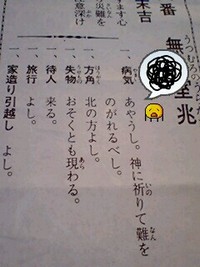 番
無 兆
末吉
ます心
災難を
意深け
一、病気 あやうし。神に祈りて難を
のがれるべし。
一、方角 北の方よし。
一、失物 おそくとも現わる。
一、待人 来る。
一、旅行 よし。
一、家造り引越し よし。